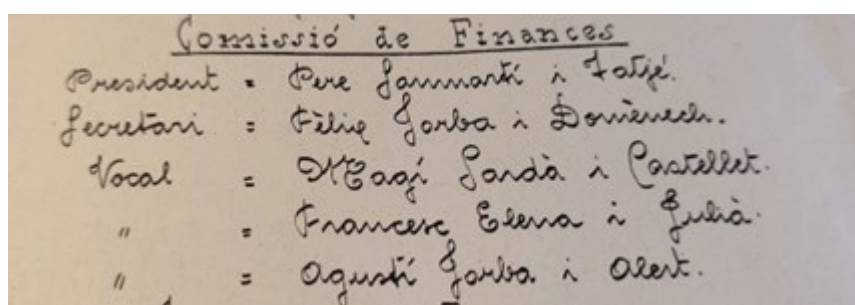 Comissió de Finances
President = Pere Sanmartí i Fatjé.
Secretari = Fèlix Jorba i Domènech.
Vocal = Magí Sardà i Castellet.
" = Francesc Elena i Julià.
" = Agustí Jorba i Alert.